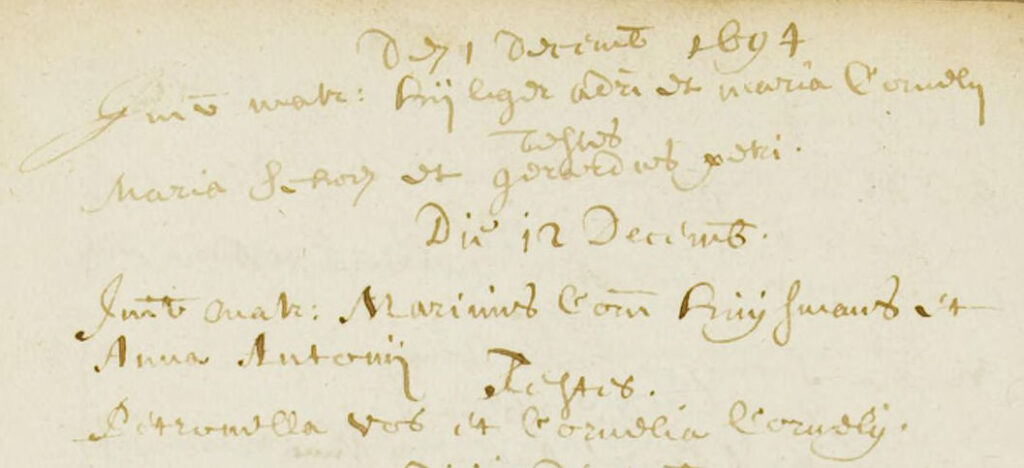 Den 1 Decemb 1694
Junt matr: Huijbreger adri et maria Cornelij
Testes
Maria Schoen et gerardus petri.
Die 12 Decemb.
Junt matr: Marinus Corn Huijsmans et
Anna Antonij
Testes.
Petronella vos et Cornelia Cornelij.